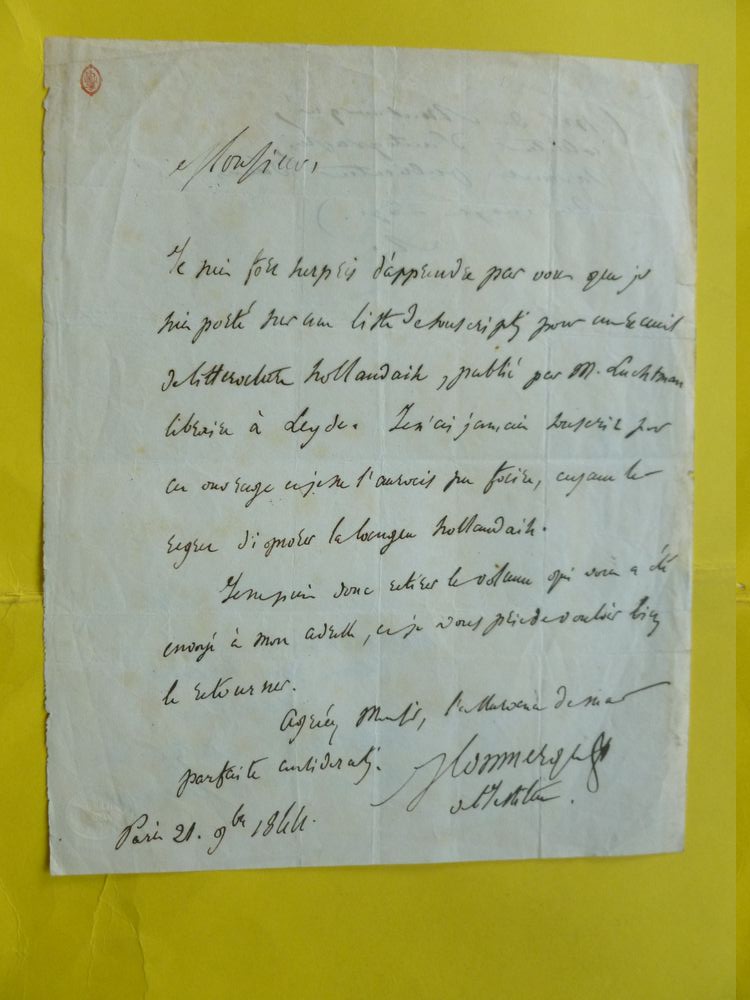 Monsieur,
Je suis fort surpris d'apprendre par vous que je
suis porté sur une liste de souscriptn pour un recueil
de litterature hollandaise, publié par M. Luchtman
libraire à Leyde. Je n'ai jamais souscrit pour
cet ouvrage et je ne l'aurois pu faire, ayant le
regret d'ignorer la langue hollandaise.
Je ne puis donc retirer le volume qui vous a été
envoyé à mon adresse, et je vous prie de vouloir bien
le retourner.
Agréez Monsr, l'assurance de ma
parfaite considératn.
Monmerqué
de l'Institut.
Paris 21. 9bre 1844.